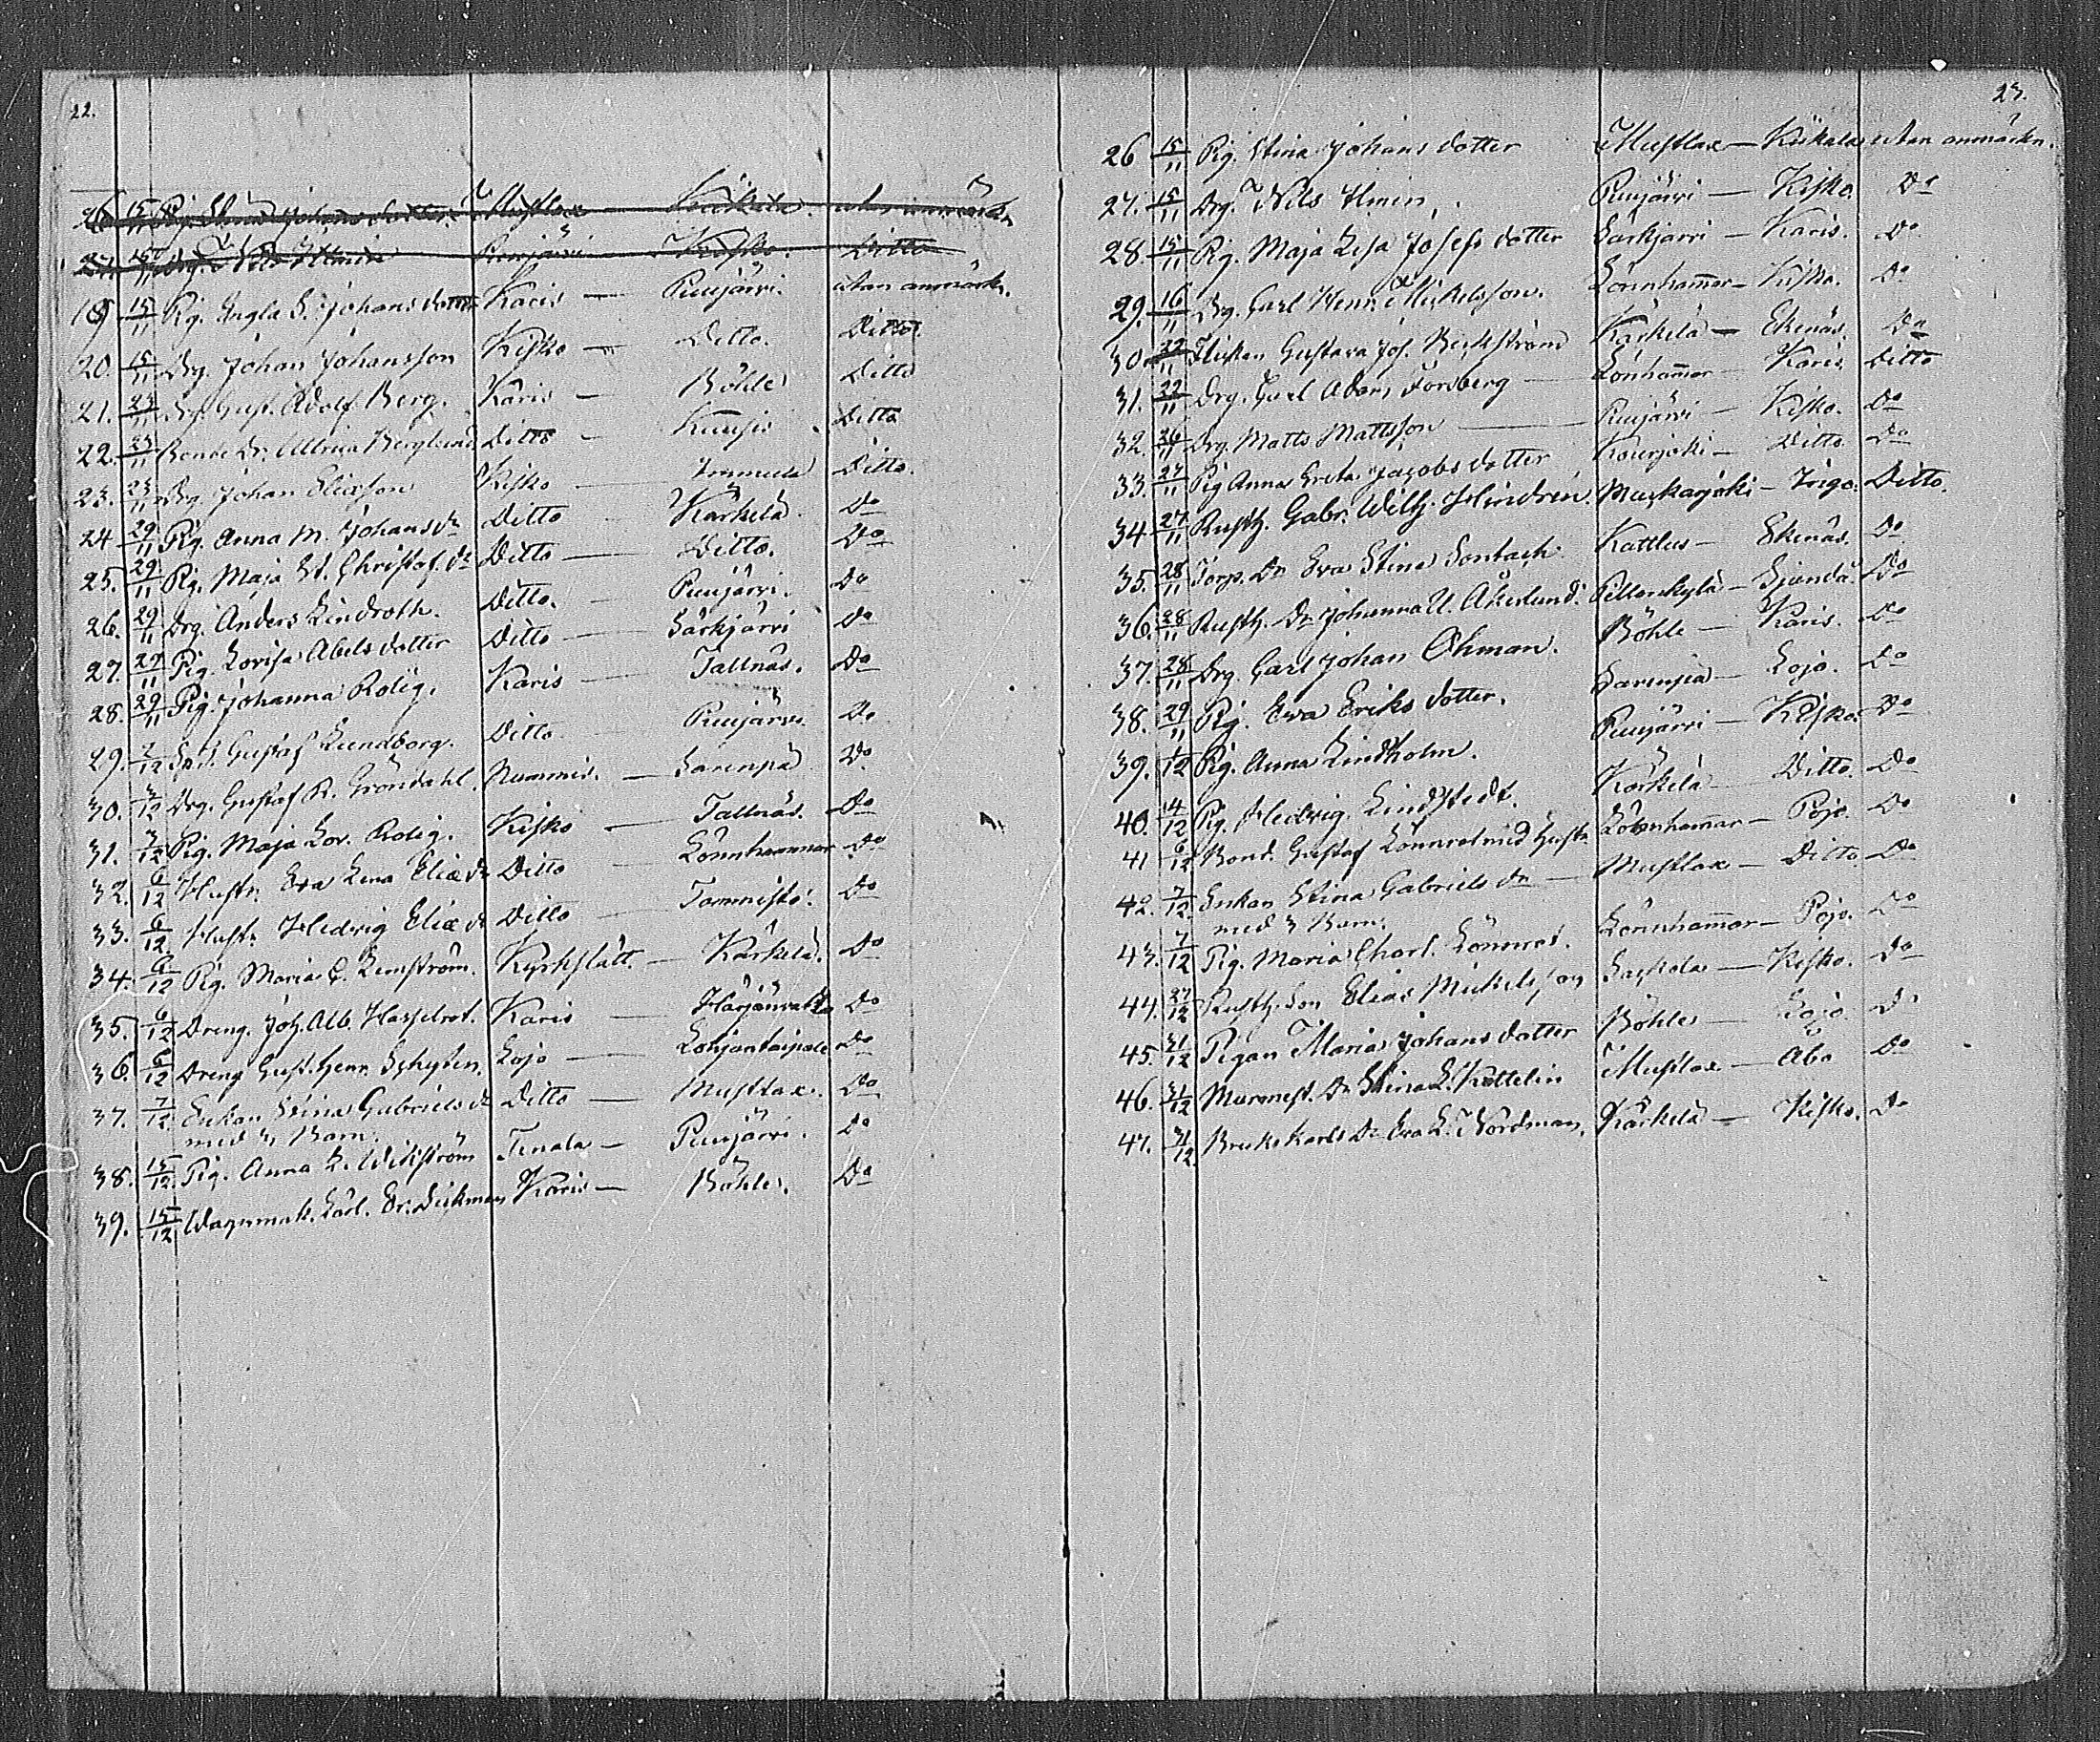 22.
26 15/11 Pig. Stina Johans dotter. Mustlax Kiikala. utan anmärkn.
27. 15/11 Drg. Nils Ilmin Puujärvi Kisko. Ditto
19 15/11 Pig. Ingla S. Johans dotter Karis — Puujärvi. utan anmärkn.
20. 15/11 Drg. Johan Johansson Kisko — Ditto. Ditto.
21. 23/11 Drg. Gust. Adolf Berg. Karis — Böhle Ditto
22. 23/11 Bonde Dr. Ulrica Berglund Ditto — Kuusis. Ditto
23. 23/11 Drg. Johan Eliasson Kisko — Immula Ditto.
24 29/11 Pig. Anna M. Johans dr Ditto — Kärkelä. Do
25. 29/11 Pig. Maja St. Christof. dr Ditto — Ditto. Do
26. 29/11 Drg. Anders Lindroth. Ditto. — Puujärvi. Do
27. 29/11 Pig. Lovisa Abels dotter Ditto — Särkjärvi Do
28. 29/11 Pig. Johanna Rolig. Karis — Tallnäs. Do
29. 2/12 Gustaf Lundborg. Ditto — Puujärvi Do
30. 3/12 Drg. Gustaf R. Gröndahl. Nummis. — Sarenpä Do
31. 7/12 Pig. Maja Lov. Rolig. Kisko — Tallnäs. Do
32. 6/12 Hustr. Eva Lena Eliæ dr Ditto — Lönnhammar Do
33. 6/12 Hustr. Hedvig Eliæ dr Ditto — Tammisto. Do
34. 6/12 Pig. Maria C. Lemström. Kyrkslätt. — Kärkelä. Do
35. 6/12 Dreng. Joh. Alb. Hasselrot. Karis — Härjänvatsa Do
36. 6/12 Dreng Gust. Henr. Lojo — Lohjantaipale Do
37. 7/12 Enkan Stina Gabriels dr Ditto — Mustlax. Do
med 3 Barn.
38. 15/12 Pig. Anna L. Wikström Tenala — Puujärvi. Do
39. 15/12 Wagnmak. Carl. Er. Dickman Karis — Böhle. Do
23.
26 15/11 Pig. Stina Johans dotter Mustlax — Kiikala utan anmärkn.
27. 15/11 Drg. Nils Ilmin. Puujärvi — Kisko. Do
28. 15/11 Pig. Maja Lisa Josefs dotter Särkjärvi — Karis. Do
29. 16/11 Drg. Carl Henr. Mickelsson. Lönnhammar — Kisko. Do
30. 22/11 Flickan Gustava Jos. Beckström Kärkelä — Ekenäs. Do
31. 22/11 Drg. Carl Adam Forsberg — Lönhammar — Karis. Ditto
32. 26/11 Drg. Matts Mattsson — Puujärvi — Kisko. Do
33. 27/11 Pig Anna Greta Jacobs dotter Kourjoki — Ditto. Do
34 27/11 Rusth. Gabr. Wilh. Hindrén. Maskarjoki — Ingo. Ditto.
35. 28/11 Torp. Dr Eva Stina Kattlus — Ekenäs. Do
36. 28/11 Rusth. Dr Johanna U. Åkerlund. Pellonkylä — Sjundå. Do
37. 28/11 Drg. Carl Johan Öhman. Böhle — Karis. Do
38. 29/11 Pig. Eva Eriks dotter. Sarenpä — Lojo. Do
39. 1/12 Pig. Anna Lindholm. Puujärvi — Kisko. Do
40. 4/12 Pig. Hedvig Lindstedt. Kärkelä — Ditto. Do
41 6/12 Bond. Gustaf Lönnrot med Hustr. Lönnhammar — Pojo. Do
42. 7/12 Enkan Stina Gabriels dr — Mustlax — Ditto Do
med 3 Barn.
43. 7/12 Pig. Maria Charl. Lönnrot. Lönnhammar — Pojo. Do
44. 27/12 Rusth. Son Elias Mickelsson Saskola — Kisko. Do
45. 31/12 Pigan Maria Johans dotter Böhle — Lojo. Do
46. 31/12 Murmest. Dr Stina L. Kettelin Mustlax — Åbo Do
47. 31/12 Brukskarls Dr Eva L. Nordman. Kärkelä — Kisko. Do